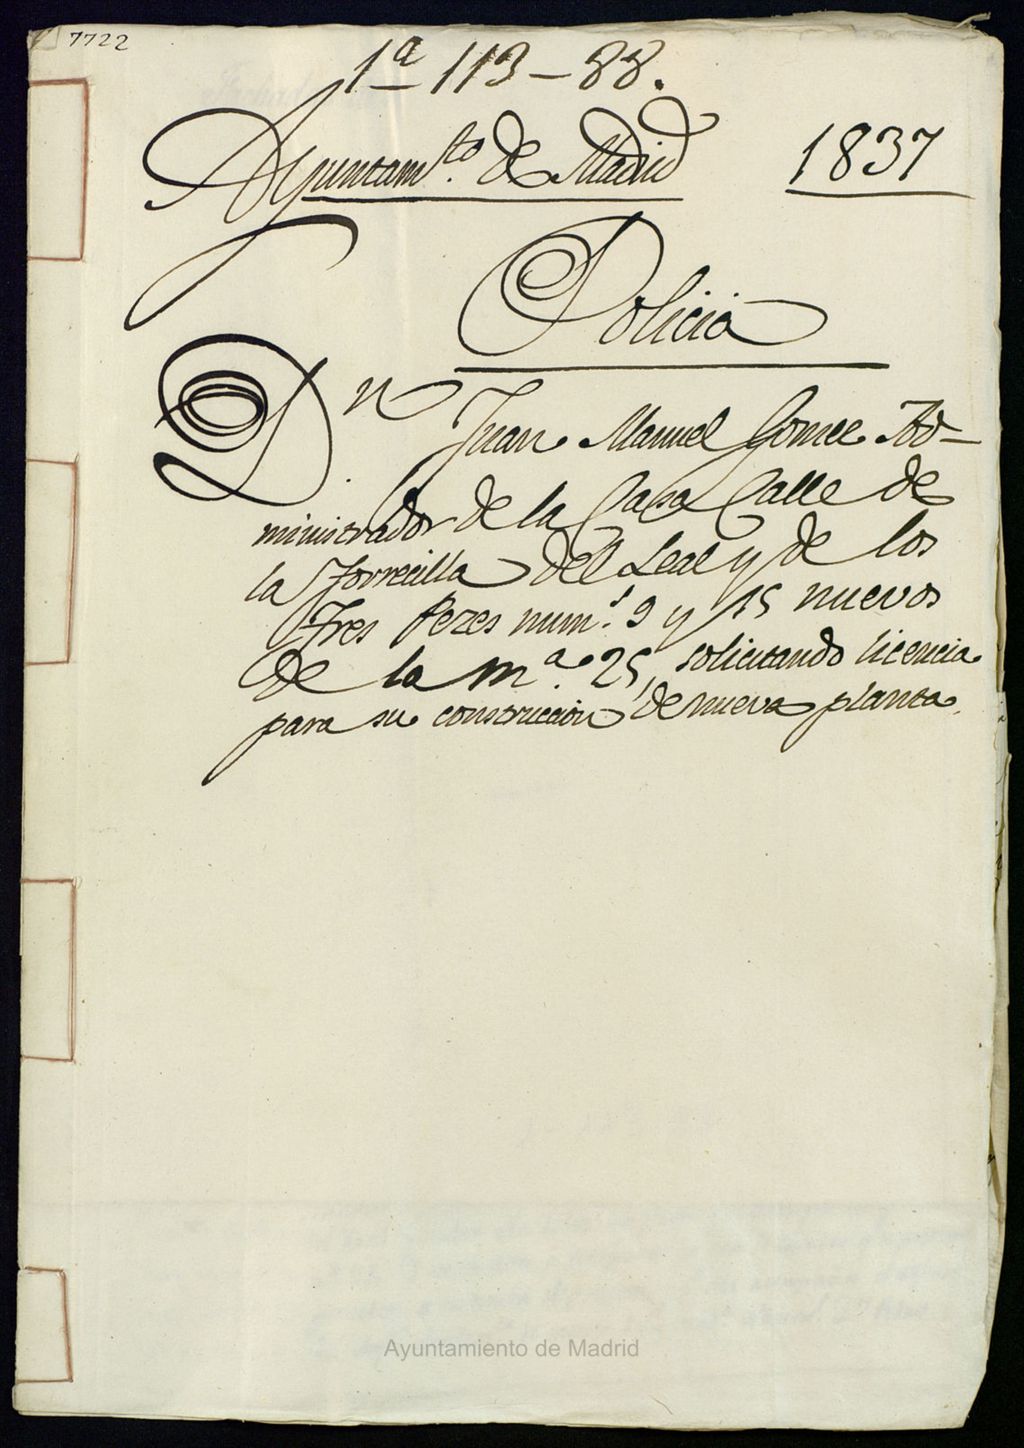 7722
1ª 113-88.
Ayuntam.to de Madrid 1837
Policia
D.n Juan Manuel Gomez Ad-
ministrador de la Casa Calle de
la Torrecilla del Leal y de los
Tres Pezes num.s 9 y 15 nuevos
de la m.ª 25, solicitando licencia
para su construccion de nueva planta.
Ayuntamiento de Madrid